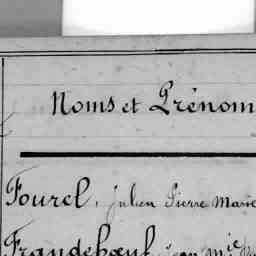 Noms et Prénom
Fourel, Julien Pierre Marie
Frandebœuf, Jean M^ie